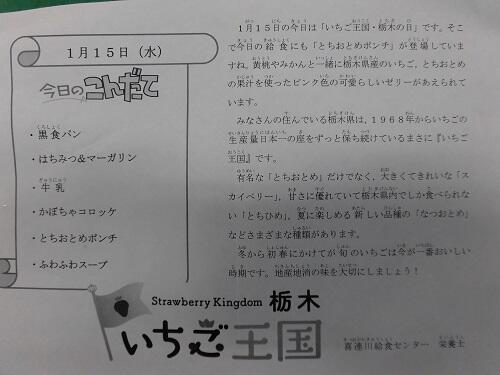 1月15日（水）
今日のこんだて
・黒食パン
・はちみつ&マーガリン
・牛乳
・かぼちゃコロッケ
・とちおとめポンチ
・ふわふわスープ
1月15日の今日は「いちご王国・栃木の日」です。そこ
で今日の給食にも「とちおとめポンチ」が登場していま
すね。黄桃やみかんと一緒に栃木県産のいちご、とちおとめ
の果汁を使ったピンク色の可愛らしいゼリーがあえられて
います。
みなさんの住んでいる栃木県は、1968年からいちごの
生産量日本一の座をずっと保ち続けているまさに『いちご
王国』です。
有名な「とちおとめ」だけでなく、大きくてきれいな「ス
カイベリー」、甘さに優れていて栃木県内でしか食べられな
い「とちひめ」、夏に楽しめる新しい品種の「なつおとめ」
などさまざまな種類があります。
冬から初春にかけてが旬のいちごは今が一番おいしい
時期です。地産地消の味を大切にしましょう！
Strawberry Kingdom 栃木
いちご王国
喜連川給食センター 栄養士